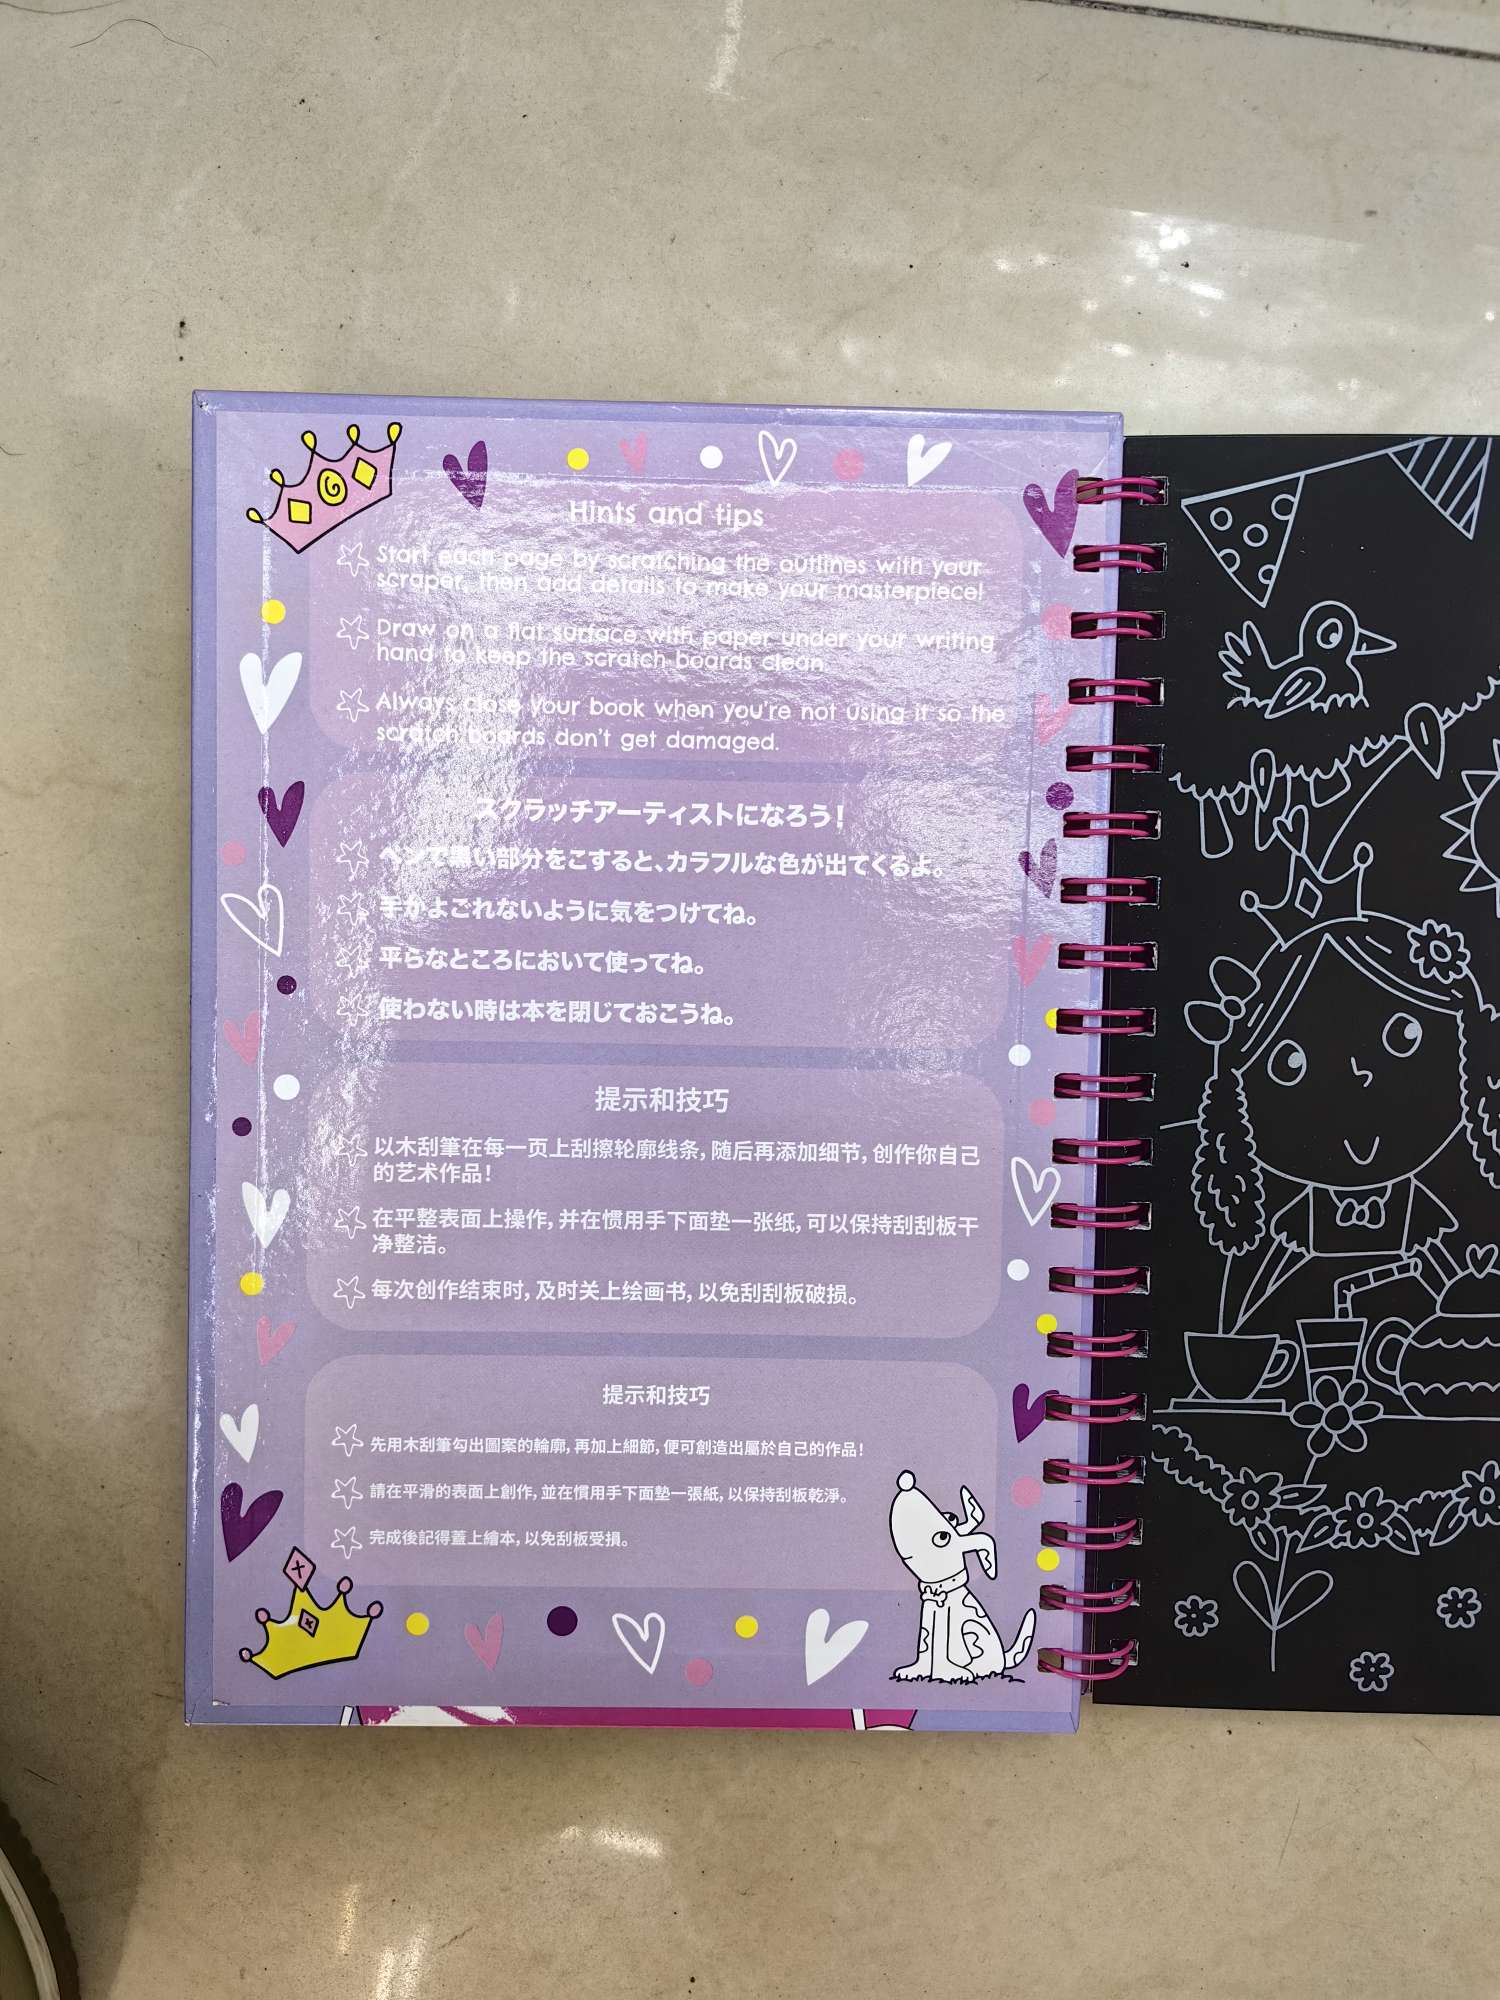 Hints and tips
Start each page by scratching the outlines with your
scraper, then add details to make your masterpiece!
Draw on a flat surface with paper under your writing
hand to keep the scratch boards clean.
Always close your book when you're not using it so the
scratch boards don't get damaged.
スクラッチアーティストになろう!
ペンで黒い部分をこすると、カラフルな色が出てくるよ。
手がよごれないように気をつけてね。
平らなところにおいて使ってね。
使わない時は本を閉じておこうね。
提示和技巧
以木刮筆在每一页上刮擦轮廓线条, 随后再添加细节, 创作你自己
的艺术作品!
在平整表面上操作, 并在惯用手下面垫一张纸, 可以保持刮刮板干
净整洁。
每次创作结束时, 及时关上绘画书, 以免刮刮板破损。
提示和技巧
先用木刮筆勾出圖案的輪廓, 再加上細節, 便可創造出屬於自己的作品!
請在平滑的表面上創作, 並在慣用手下面墊一張紙, 以保持刮板乾淨。
完成後記得蓋上繪本, 以免刮板受損。